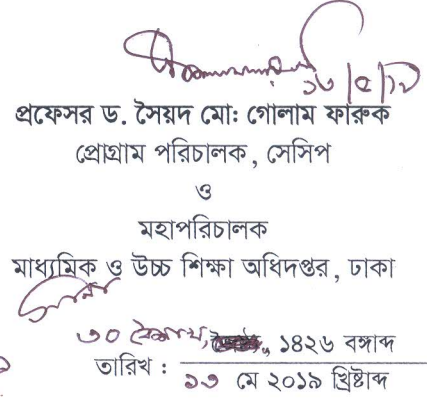 ১৩/৫/১৯
প্রফেসর ড. সৈয়দ মো: গোলাম ফারুক
প্রোগ্রাম পরিচালক, সেসিপ
ও
মহাপরিচালক
মাধ্যমিক ও উচ্চ শিক্ষা অধিদপ্তর, ঢাকা
৩০ বৈশাখ, ১৪২৬ বঙ্গাব্দ
তারিখ :
১৩ মে ২০১৯ খ্রিষ্টাব্দ